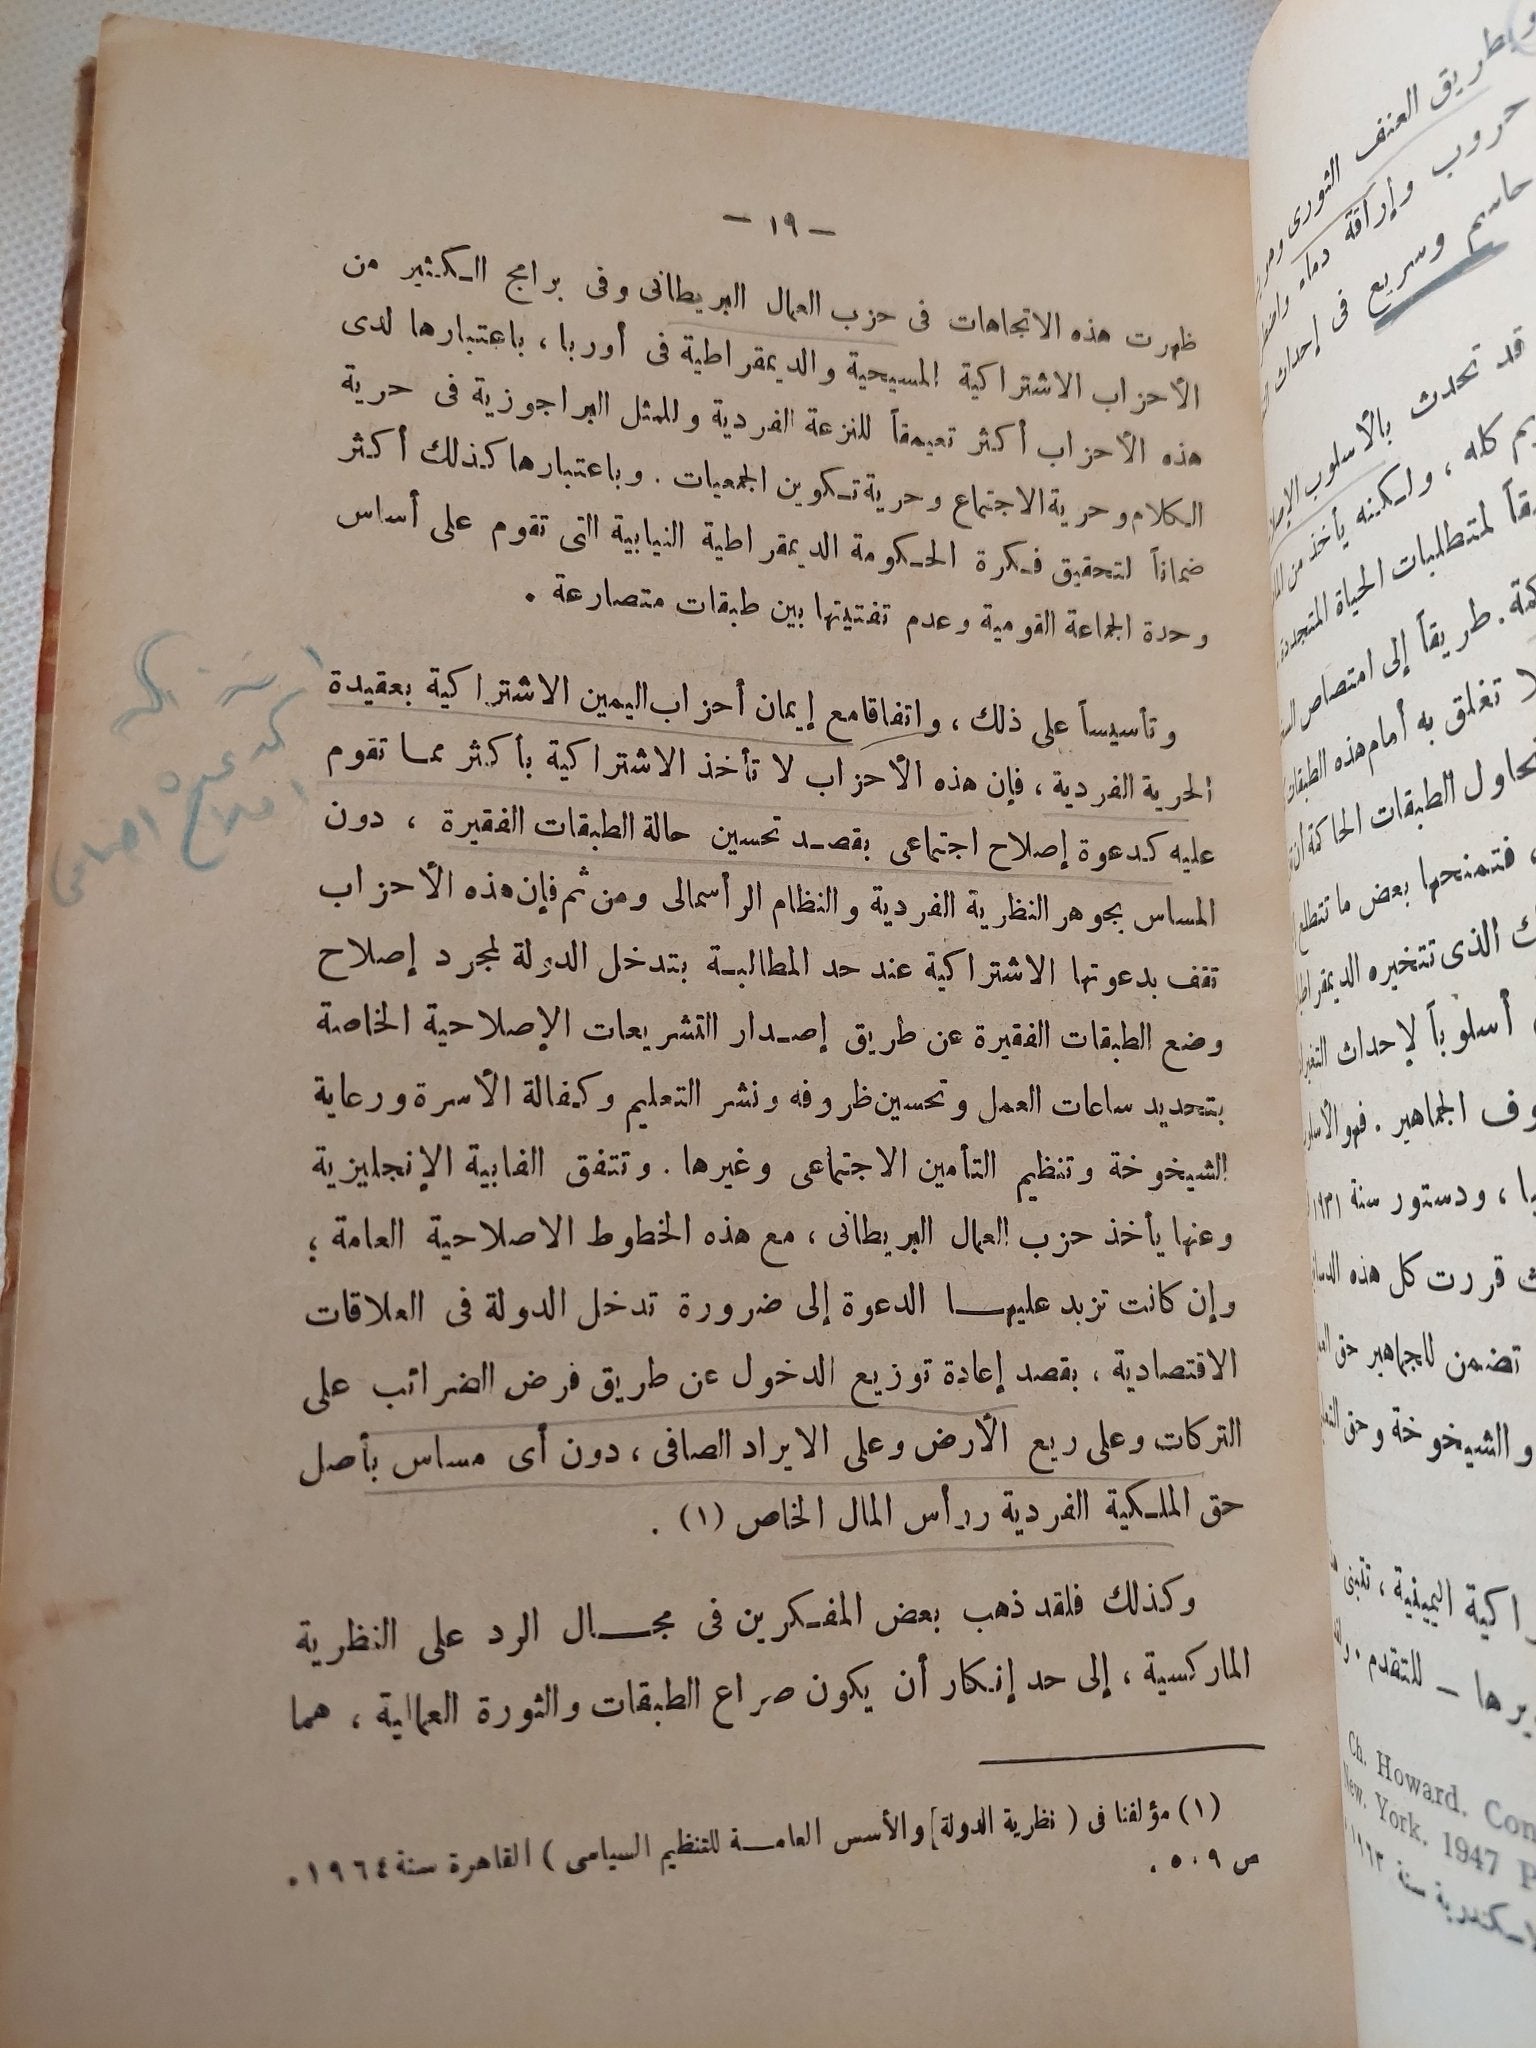 — ١٩ —
ظهرت هذه الاتجاهات فى حزب العمال البريطانى وفى برامج الكثير من
الأحزاب الاشتراكية المسيحية والديمقراطية فى أوربا ، باعتبارها لدى
هذه الأحزاب أكثر تعيمقاً للنزعة الفردية وللمثل البراجوزية فى حرية
الكلام وحرية الاجتماع وحرية تكوين الجمعيات . وباعتبارها كذلك أكثر
ضماناً لتحقيق فكرة الحكومة الديمقراطية النيابية التى تقوم على أساس
وحدة الجماعة القومية وعدم تفتيتها بين طبقات متصارعة .
وتأسيساً على ذلك ، واتفاقا مع إيمان أحزاب اليمين الاشتراكية بعقيدة
الحرية الفردية ، فإن هذه الأحزاب لا تأخذ الاشتراكية بأكثر مما تقوم
عليه كدعوة إصلاح اجتماعى بقصد تحسين حالة الطبقات الفقيرة ، دون
المساس بجوهر النظرية الفردية والنظام الرأسمالى ومن ثم فإن هذه الأحزاب
تقف بدعوتها الاشتراكية عند حد المطالبة بتدخل الدولة لمجرد إصلاح
وضع الطبقات الفقيرة عن طريق إصدار التشريعات الإصلاحية الخاصة
بتحديد ساعات العمل وتحسين ظروفه ونشر التعليم وكفالة الأسرة ورعاية
الشيخوخة وتنظيم التأمين الاجتماعى وغيرها . وتتفق الفابية الإنجليزية
وعنها يأخذ حزب العمال البريطانى ، مع هذه الخطوط الاصلاحية العامة ؛
وإن كانت تزيد عليها الدعوة إلى ضرورة تدخل الدولة فى العلاقات
الاقتصادية ، بقصد إعادة توزيع الدخول عن طريق فرض الضرائب على
التركات وعلى ريع الأرض وعلى الايراد الصافى ، دون أى مساس بأصل
حق الملكية الفردية ورأس المال الخاص (١) .
وكذلك فلقد ذهب بعض المفكرين فى مجال الرد على النظرية
الماركسية ، إلى حد إنكار أن يكون صراع الطبقات والثورة العمالية ، هما
(١) مؤلفنا فى ( نظرية الدولة والأسس العامة للتنظيم السياسى ) القاهرة سنة ١٩٦٤ .
ص ٥٠٩ .
كدعوة
اصلاح اجتماعى
طريق العنف الثورى
حروب وإراقة دماء
حاسم وسريع فى إحداث
قد تحدث بالأسلوب
كله ، ولكنه يأخذ من
لمتطلبات الحياة المتجددة
طريقاً إلى امتصاص
تغلق به أمام هذه الطبقات
الطبقات الحاكمة أن
، فتمنحها بعض ما تتطلع
الذى تتخيره
أسلوباً لإحداث
الجماهير . فهو
، ودستور سنة ١٩٣١
قررت كل هذه
تضمن للجماهير حق
والشيخوخة وحق
اليمينية ، تتبنى
— للتقدم .
Ch. Howard. Con
New. York. 1947 P
سنة